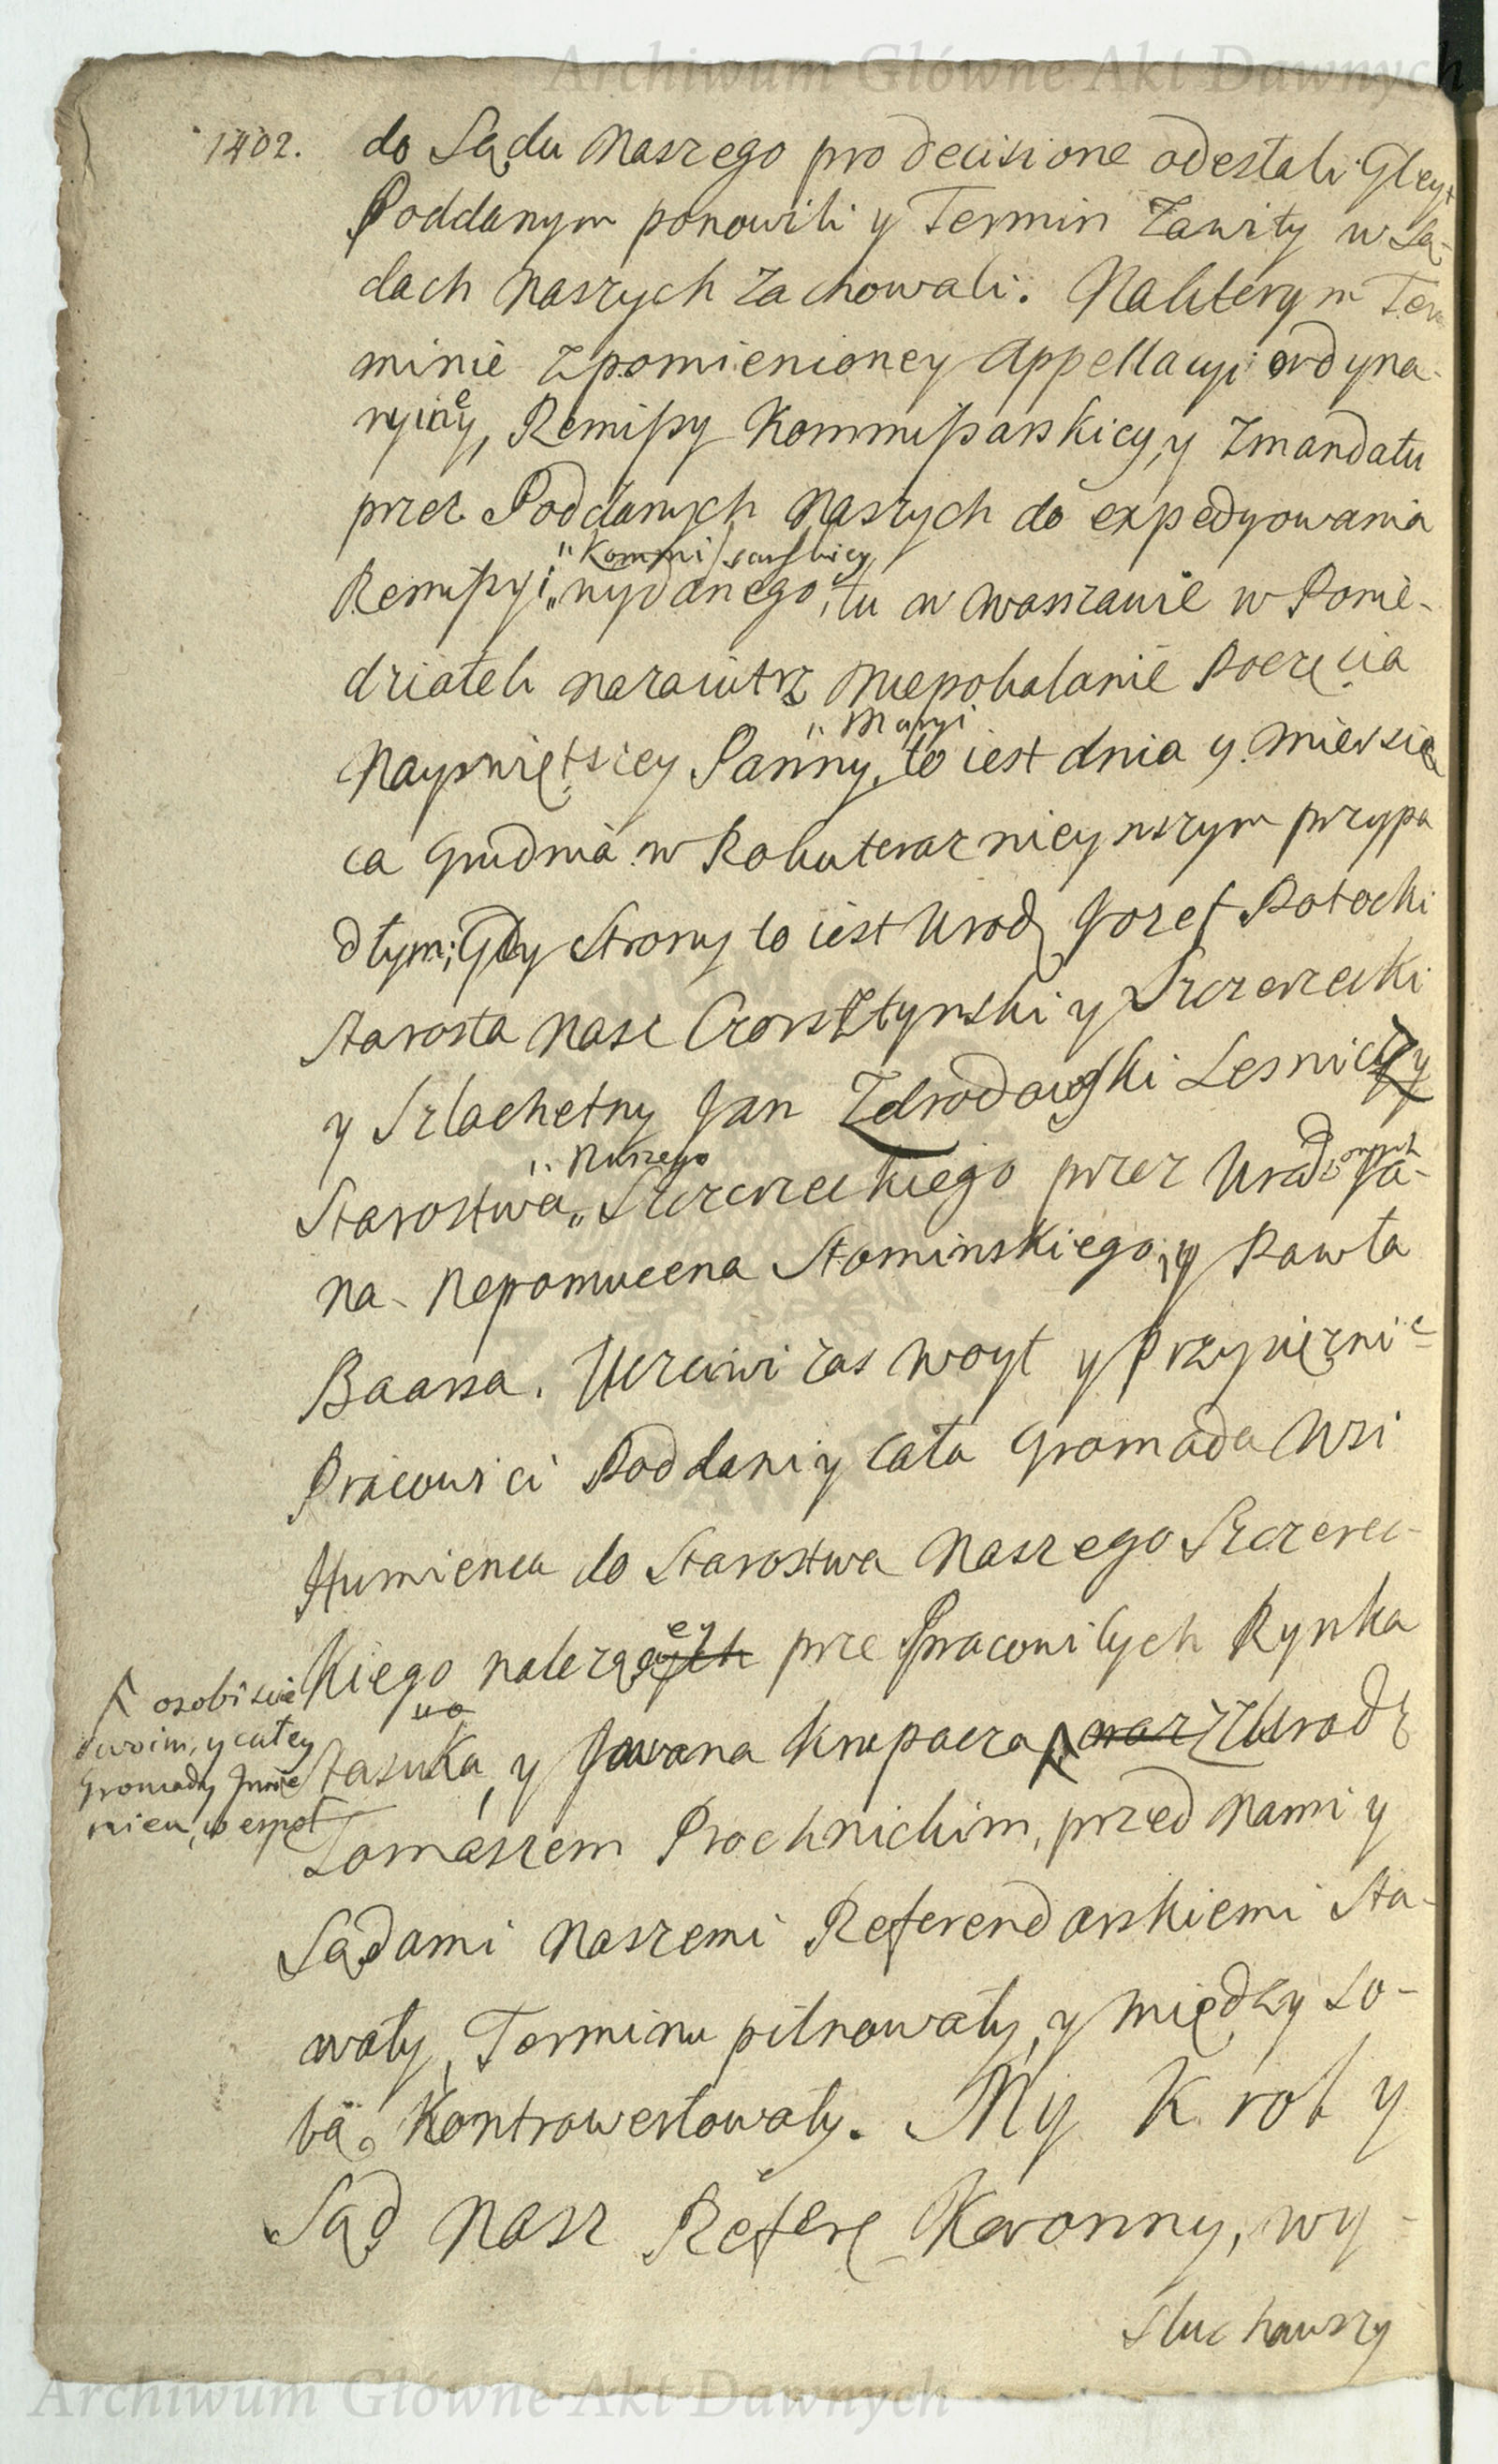 Archiwum Główne Akt Dawnych
1402.
do Sądu Naszego pro decisione odesłali Gleyt
Poddanym ponowili y Termin Zawity w Są-
dach Naszych zachowali. Naktorym Ter
minie zpomienioney Appellacyi ordyna-
ryiney, Remissy Kommissarskiey, y zmandatu
przez Poddanych Naszych do expedyowania
Remissyi „Kommissarskiey wydanego, tu w Warszawie w Ponie-
działek nazaiutrz Niepokalanie Poczęcia
Nayswiętszey Panny „Maryi to iest dnia 9. Miesią
ca Grudnia w Roku teraznieyszym przypa
dłym; Gdy Strony to iest Urodz Jozef Potocki
Starosta Nasz Czorsztynski y Szczerzecki
y Szlachetny Jan Zdrodowski Lesniczy
Starostwa „Naszego Szczerzeckiego przez Urodzonych Ja-
na Nepomucena Słominskiego, y Pawła
Baarsa. Uczciwi zas Woyt y Przysięzni
Pracowici Poddani y cała Gromada Wsi
Humienca do Starostwa Naszego Szczerec-
kiego należącey prze Pracowitych Rynka
Stasuka, y Jwana Knepacza, wraz z Urodz
osobiscie
swoim, y całey
Gromady Jmie
niem, wespoł
Tomaszem Prochnickim, przed Nami y
Sądami Naszemi Referendarskiemi Sta-
wały, Terminu pilnowały, y między so-
bą Kontrowertowały. My Krol y
Sąd Nasz Refere Koronny, wy-
słuchawszy
Archiwum Główne Akt Dawnych